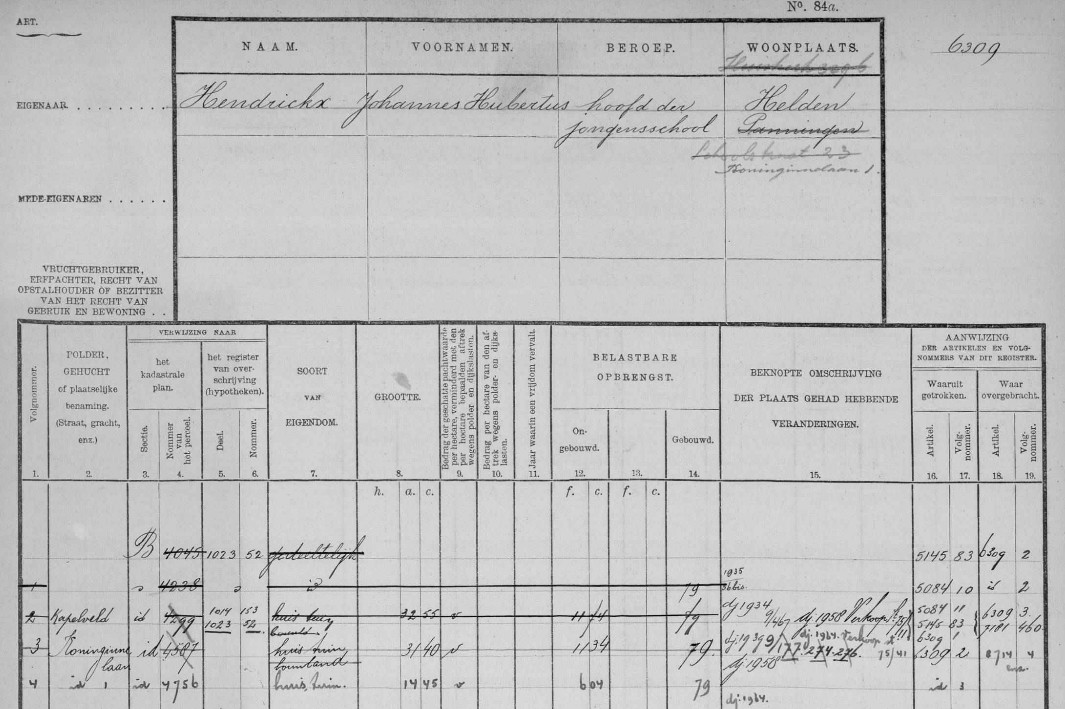 ART.
Nº. 84a.
NAAM. VOORNAMEN. BEROEP. WOONPLAATS.
6309
EIGENAAR Hendrickx Johannes Hubertus hoofd der Helden
jongensschool Panningen
Schoolstraat 23
Koninginnelaan 1.
MEDE-EIGENAREN
VRUCHTGEBRUIKER,
ERFPACHTER, RECHT VAN
OPSTALHOUDER OF BEZITTER
VAN HET RECHT VAN
GEBRUIK EN BEWONING
Volgnommer.
POLDER,
GEHUCHT
of plaatselijke
benaming.
(Straat, gracht,
enz.)
VERWIJZING NAAR
het
kadastrale
plan.
Sectie.
Nommer
van
het perceel.
het register
van over-
schrijving
(hypotheken).
Deel.
Nommer.
SOORT
VAN
EIGENDOM.
GROOTTE.
Bedrag der geschatte pachtwaarde
per hectare, verminderd met den
per hectare bepaalden aftrek
wegens polder en dijkslasten.
Bedrag per hectare van den af-
trek wegens polder- en dijks-
lasten.
Jaar waarin een vrijdom vervalt.
BELASTBARE
OPBRENGST.
On-
gebouwd.
Gebouwd.
BEKNOPTE OMSCHRIJVING
DER PLAATS GEHAD HEBBENDE
VERANDERINGEN.
AANWIJZING
DER ARTIKELEN EN VOLG-
NOMMERS VAN DIT REGISTER.
Waaruit
getrokken.
Waar
overgebracht.
Artikel.
Volg-
nommer.
Artikel.
Volg-
nommer.
1. 2. 3. 4. 5. 6. 7. 8. 9. 10. 11. 12. 13. 14. 15. 16. 17. 18. 19.
h. a. c. f. c. f. c.
B 4045 1023 52 gedeeltelijk 5145 83 6309 2
1935
1 4238 id 79 36bis. 5084 10 id 2
2 Kapelveld id 4299 1014 153 huis tuin 32 55 v 11 74 79 dj 1934 9/467 dj. 1958 Verkoop 5084 11 6309 3.
1023 52 bouwld 5145 83 7181 460
3 Koninginne id 4587 huis tuin 31 40 v 11 34 79. dj. 1939 9/177. 274. 276. dj. 1964. Verkoop 75/41 6309 1
laan bouwland dj. 1958 6309 2 8714 4
4 id 1 id 4756 huis, tuin. 14 45 v 6 04 79 id 3
dj. 1964.